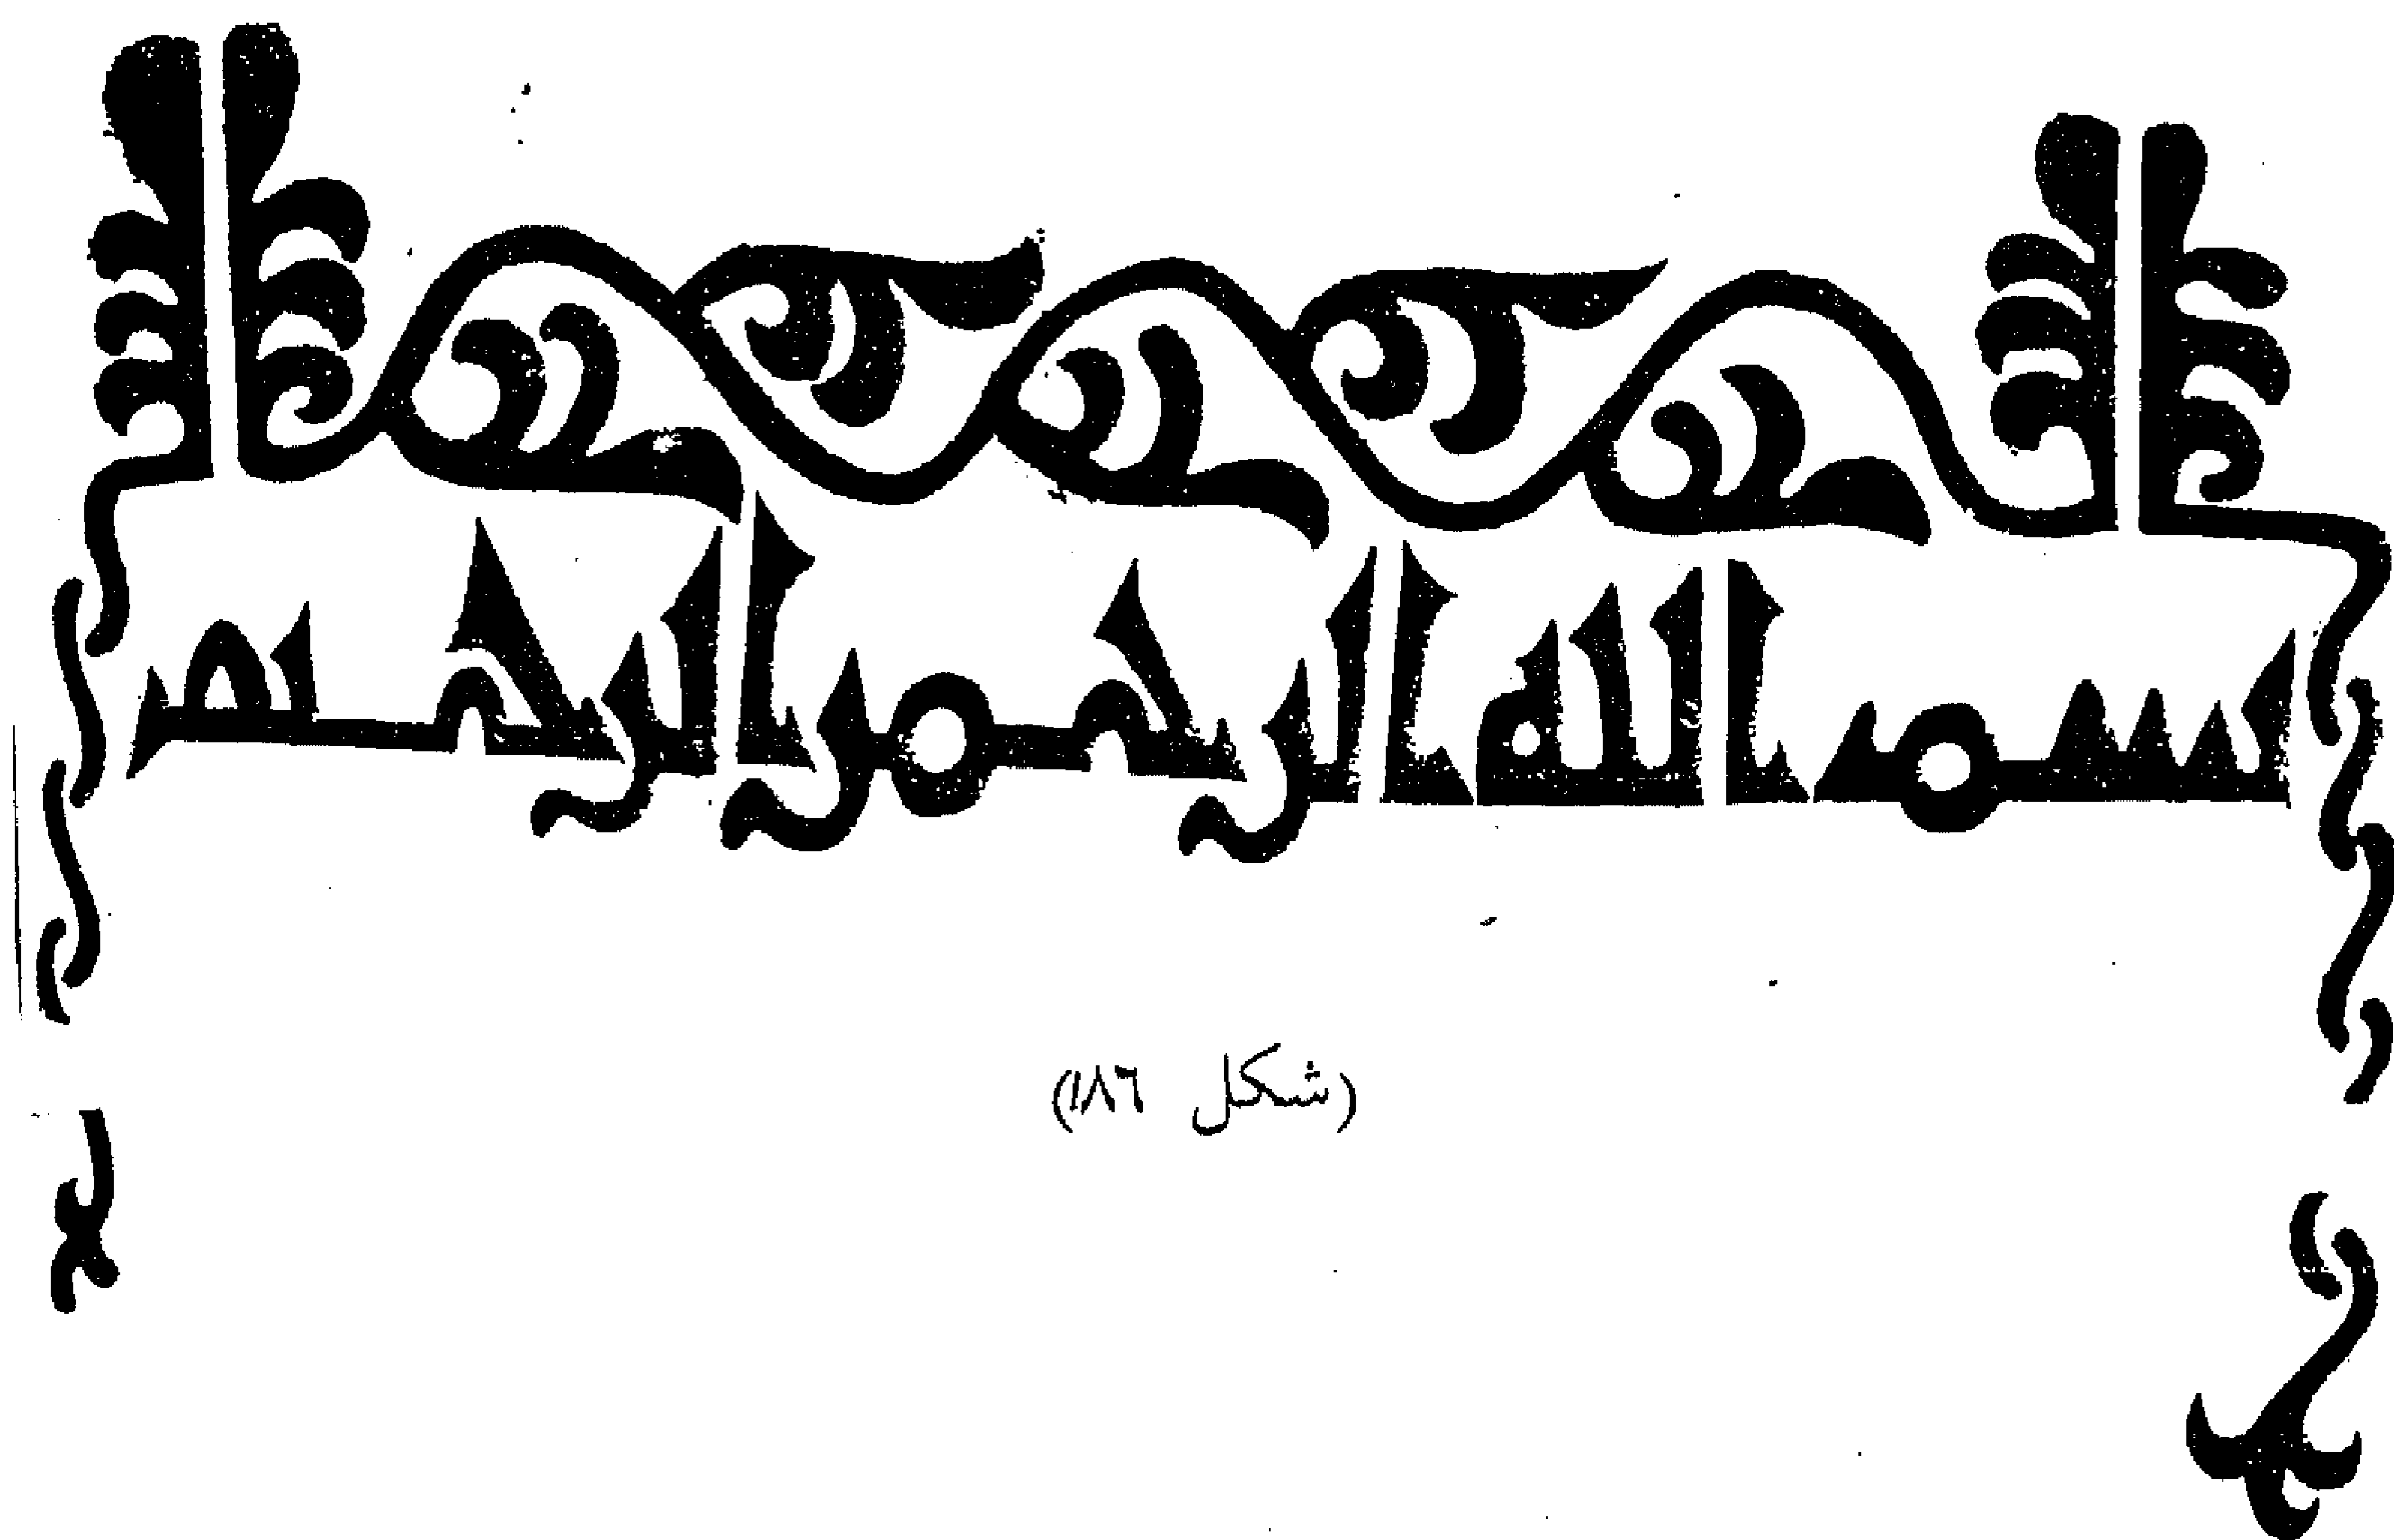 بسم الله الرحمن الرحيم
(شكل ١٨٦)